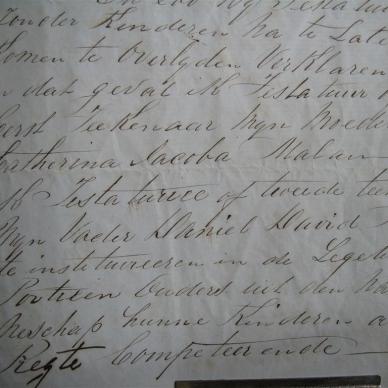 En zoo wy Testatu
Zonder Kinderen na te Late
komen te Overlyden Verklaren
n dat geval ik Testateur
Eerst Teekenaar Myn Moede
Catherina Jacoba Malan
Ik Testatrice of tweede tee
Myn Vader Daniel David
te instituieeren in de Legeti
Portien Ouders uit den Na
Kinderen a
Regte Competeerende